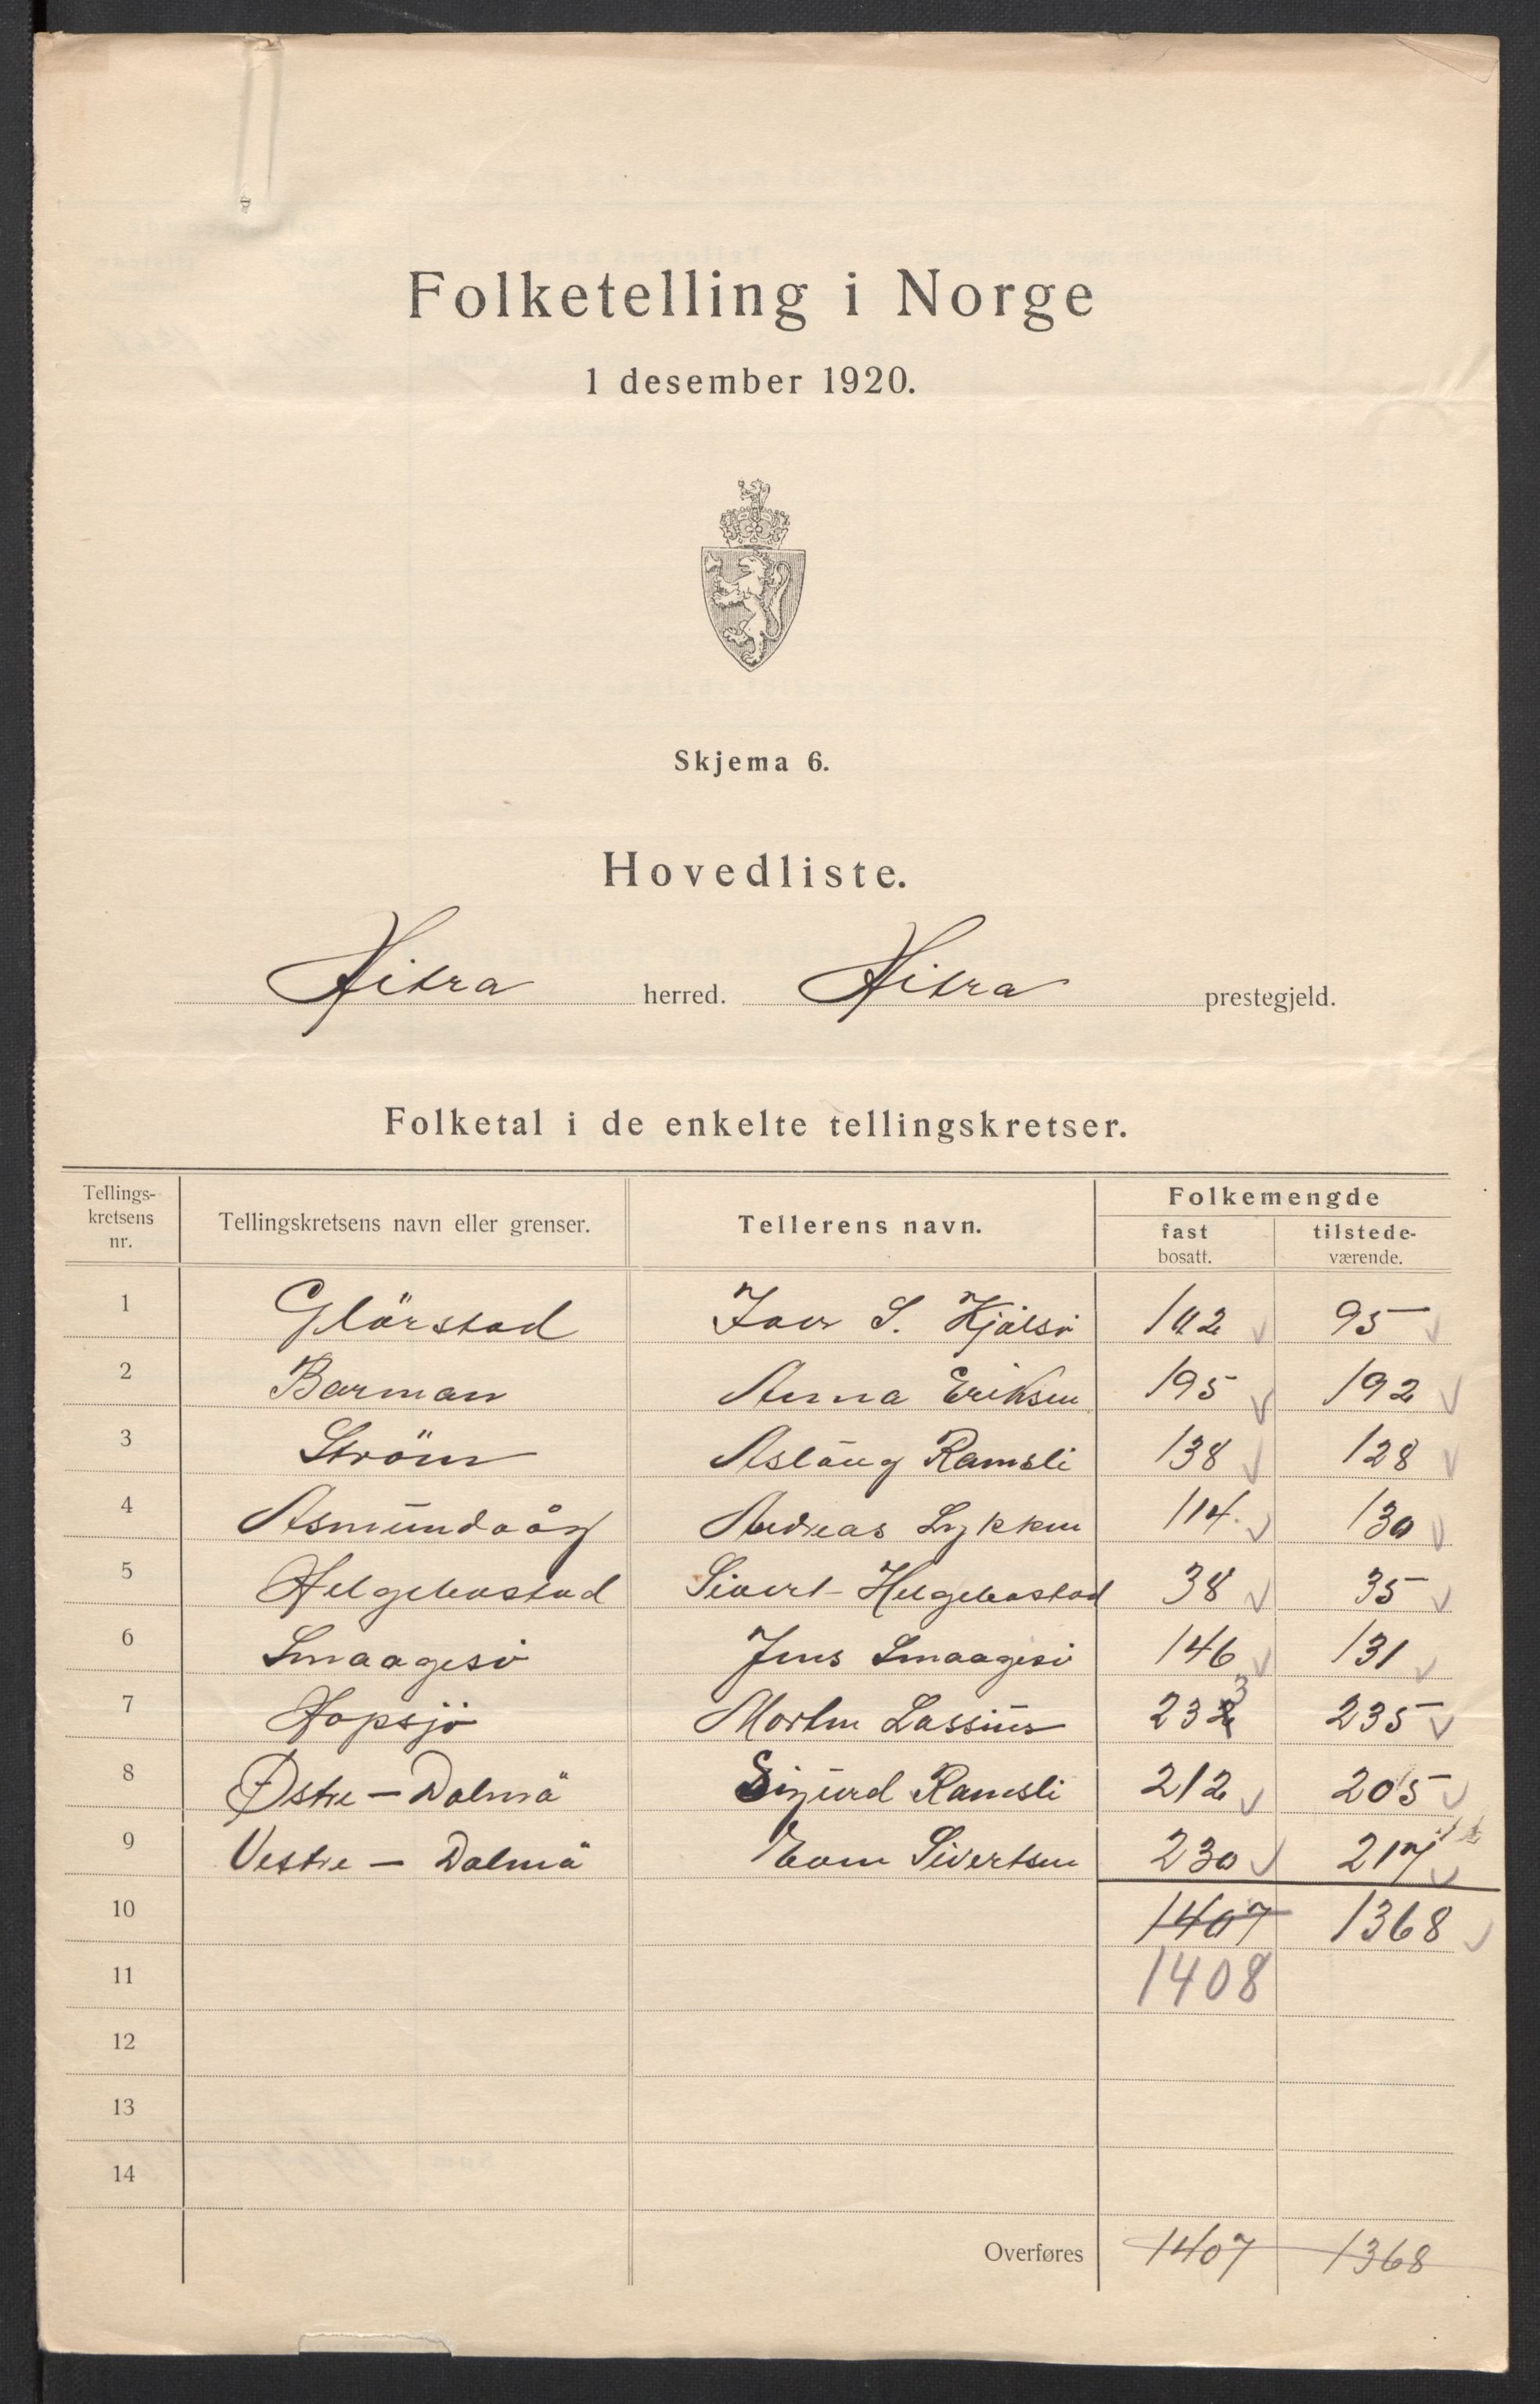 Folketelling i Norge
1 desember 1920.
Skjema 6.
Hovedliste.
Hitra herred. Hitra prestegjeld.
Folketal i de enkelte tellingskretser.
Tellings-kretsens nr. Tellingskretsens navn eller grenser. Tellerens navn. Folkemengde fast bosatt. tilstede-værende.
1 Glörstad S. 102 95
2 Barman Anna Eriksen 195 192
3 Ström Aslaug Ramsli 138 128
4 Asmundvåg Andreas Lykken 114 130
5 Helgebostad Sivert Helgebostad 38 35
6 Smaagesö Jens Smaagesö 146 131
7 Hopsjö Morten Lassius 232 3 235
8 Østre - Dolmö Sigurd Ramsli 212 205
9 Vestre - Dolmö Sivertsen 230 217
10 1407 1368
11 1408
12
13
14
Overføres 1407 1368